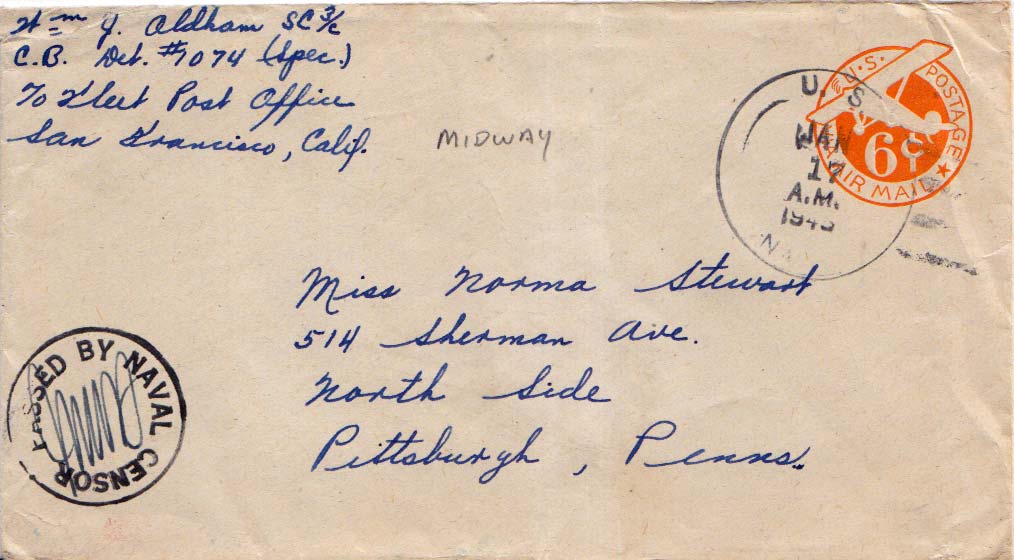 Wm J. Aldham SC 3/c
C.B. Det. #1074 (Spec.)
% Fleet Post Office
San Francisco, Calif.
MIDWAY
U.S. POSTAGE
6¢
AIR MAIL
U. S.
JAN
17
A.M.
1945
NAV
Miss Norma Stewart
514 Sherman Ave.
North Side
Pittsburgh, Penna.
PASSED BY NAVAL CENSOR